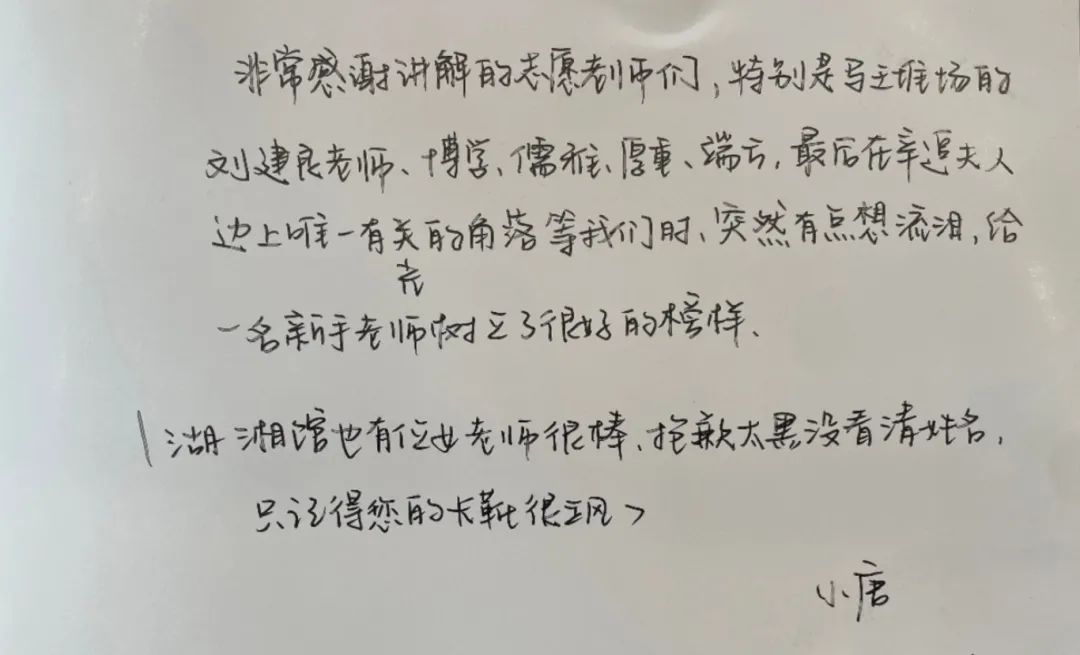 非常感谢讲解的志愿老师们,特别是马王堆场的
刘建良老师、博学、儒雅、厚重、端方,最后在辛追夫人
边上唯一有关的角落等我们时、突然有点想流泪,给
光
一名新手老师树立了很好的榜样、
湖湘馆也有位女老师很棒、抱歉太黑没看清姓名,
只记得您的卡靴很飒
小唐